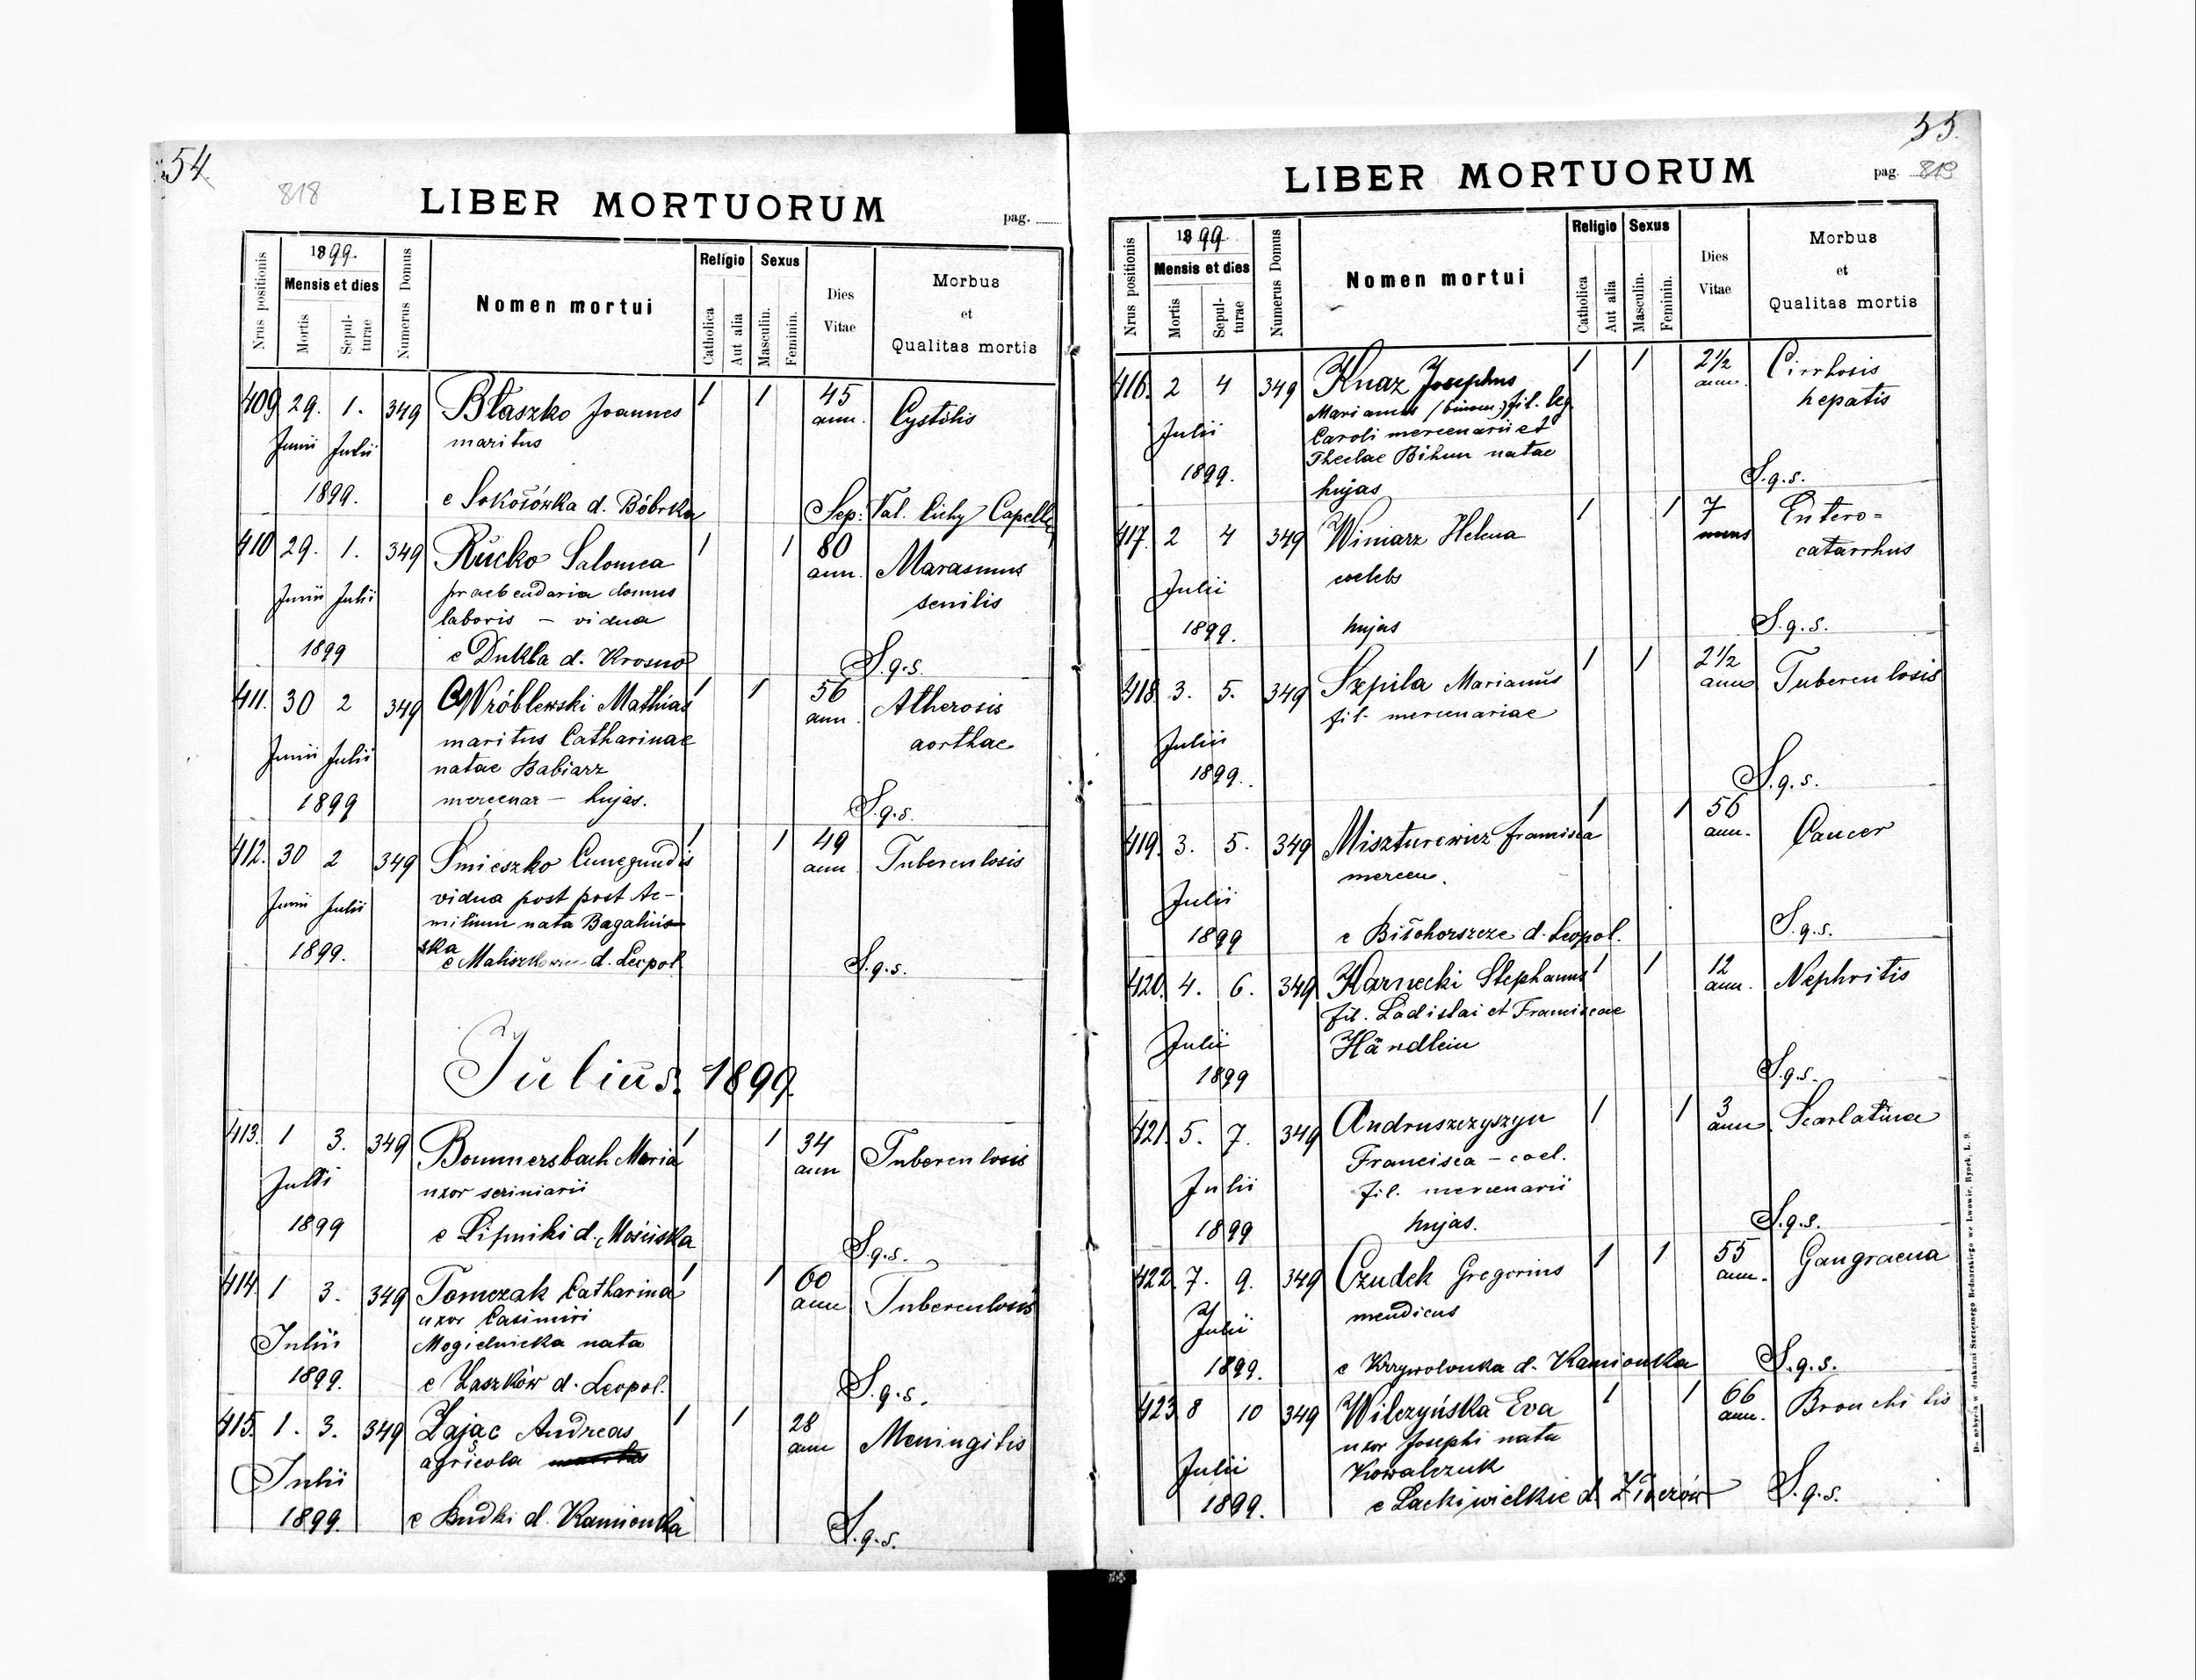 54.
818
LIBER MORTUORUM
pag.
Nrus positionis
1899.
Mensis et dies
Mortis
Sepul-
turae
Numerus Domus
Nomen mortui
Religio
Catholica
Aut alia
Sexus
Masculin.
Feminin.
Dies
Vitae
Morbus
et
Qualitas mortis
409. 29. 1. 349 Błaszko Joannes 1 1 45
ann. Cystitis
Junii Julii maritus
1899. e Sokołówka d. Bóbrka Sep: Val. Cichy Capell
410 29. 1. 349 Rucko Salomea 1 1 80
ann. Marasmus
senilis
Junii Julii praebendaria domus
laboris – vidua
1899 e Dukla d. Krosno S.g.s.
411. 30 2 349 Wróblewski Mathias 1 1 56
ann. Atherosis
aorthae
Junii Julii maritus Catharinae
natae Babiarz
1899 mercenar – hujas. S.g.s.
412. 30 2 349 Śmieszko Cunegundis 1 1 49
ann Tuberculosis
Junii Julii vidua post post Ae-
milium nata Bagalińs
ska
1899. e d. Leopol S.g.s.
Julius. 1899.
413. 1 3. 349 Bommersbach Maria 1 1 34
ann Tuberculosis
Julii uxor scriniarii
1899 e Lipniki d. Mościska S.g.s.
414. 1 3. 349 Tomczak Catharina 1 1 60
ann Tuberculosis
uxor Casimiri
Julii Mogielnicka nata
1899. e Laszków d. Leopol. S.g.s.
415. 1. 3. 349 Zając Andreas 1 1 28
ann Meningitis
agricola
Julii
1899. e Budki d. Kamionka S.g.s.
55.
LIBER MORTUORUM
pag. 819
Nrus positionis
1899.
Mensis et dies
Mortis
Sepul-
turae
Numerus Domus
Nomen mortui
Religio
Catholica
Aut alia
Sexus
Masculin.
Feminin.
Dies
Vitae
Morbus
et
Qualitas mortis
416. 2 4 349 Knaz Josephus 1 1 2½
ann. Cirrhosis
hepatis
Marianus (binom) fil. leg.
Julii Caroli mercenarii et
Theclae Bihun natae
1899. hujas S.g.s.
417. 2 4 349 Winiarz Helena 1 1 7
mens Entero=
catarrhus
coelebs
Julii
1899. hujas S.g.s.
418. 3. 5. 349 Szpila Marianus 1 1 2½
ann Tuberculosis
fil. mercenariae
Julii
1899. S.g.s.
419. 3. 5. 349 Miszturewicz Francisca 1 1 56
ann. Cancer
mercen.
Julii
1899 e d. Leopol. S.g.s.
420. 4. 6. 349 Karnecki Stephanus 1 1 12
ann. Nephritis
fil. Ladislai et Franciscae
Julii Händlein
1899 S.g.s.
421. 5. 7. 349 Andruszczyszyn 1 1 3
ann. Scarlatina
Francisca – coel.
Julii fil. mercenarii
1899 hujas. S.g.s.
422. 7. 9. 349 Czudek Gregorius 1 1 55
ann. Gangraena
mendicus
Julii
1899. e Krzywolonka d. Kamionka S.g.s.
423 8 10 349 Wilczyńska Eva 1 1 66
ann. Bronchitis
uxor Josephi nata
Julii Kowalczuk
1899. e Lackiwielkie d Złoczów S.g.s.
Do nabycia w drukarni Szczęsnego Bednarskiego we Lwowie, Rynek, L. 9.